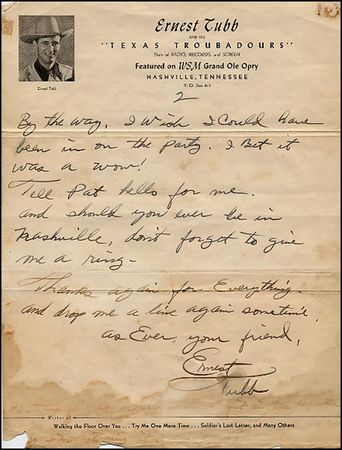 Ernest Tubb
AND HIS
"TEXAS TROUBADOURS"
Stars of RADIO, RECORDS, and SCREEN
Featured on WSM Grand Ole Opry
NASHVILLE, TENNESSEE
P. O. Box
Ernest Tubb
2
By the way, I wish I could have
been in on the party. I Bet it
was a wow!
Tell Pat hello for me.
and should you ever be in
Nashville, don't forget to give
me a ring-
Thanks again for Everything.
and drop me a line again sometime.
as Ever, your friend,
Ernest
Tubb
Writer of
Walking the Floor Over You . . . Try Me One More Time . . . Soldier's Last Letter, and Many Others